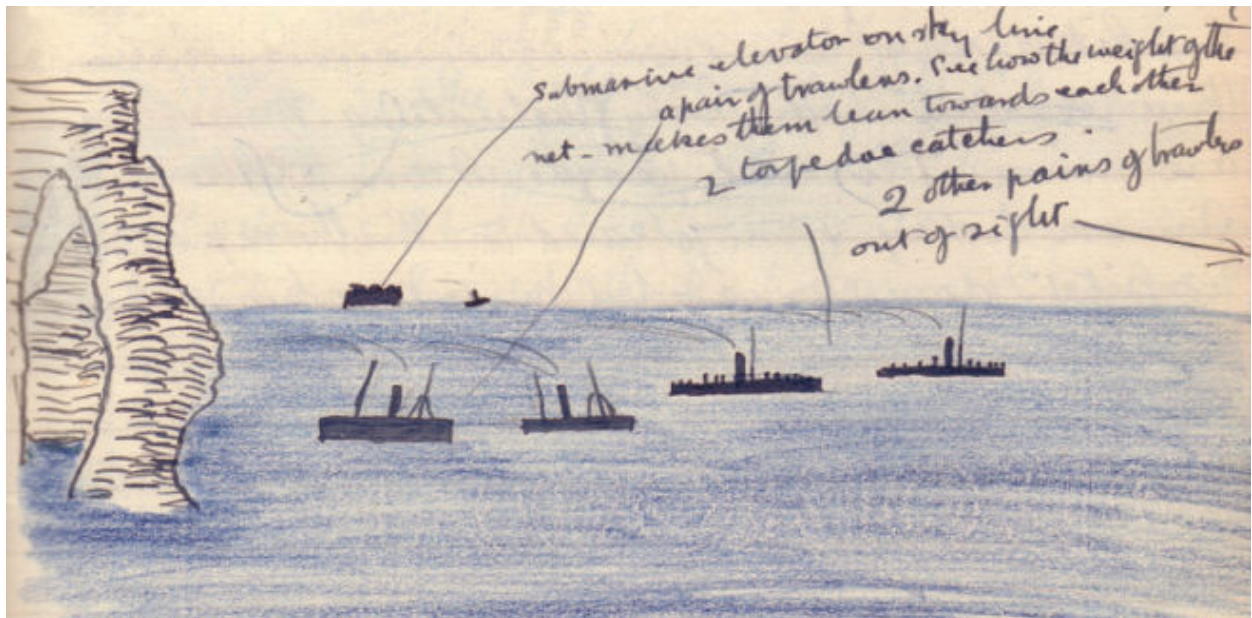 submarine elevator on sky line
a pair of trawlers. See how the weight of the
net - makes them lean towards each other
2 torpedoe catchers.
2 other pairs of trawlers
out of sight